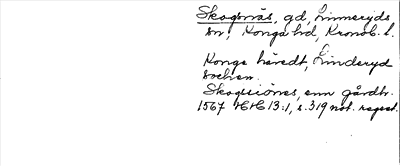 Skogsnäs, gd, Linneryds
sn, Konga hd, Kronob. l.
Konga häredt, Linderyd
sochen.
Skogzsiönes, enn gårdh.
1567 HH 13:1, s. 319 not. regest.